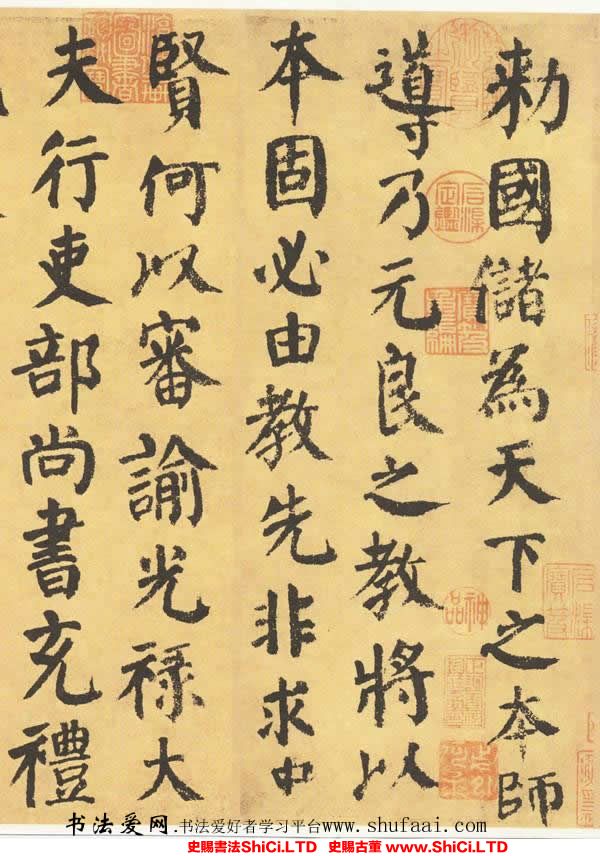 勅國儲為天下之本師
導乃元良之教將以
本固必由教先非求中
賢何以審諭光祿大
夫行吏部尚書充禮
神品
书法爱网.书法爱好者学习平台www.shufaai.com
史賜書法ShiCi.LTD 史賜古董 www.ShiCi.LTD